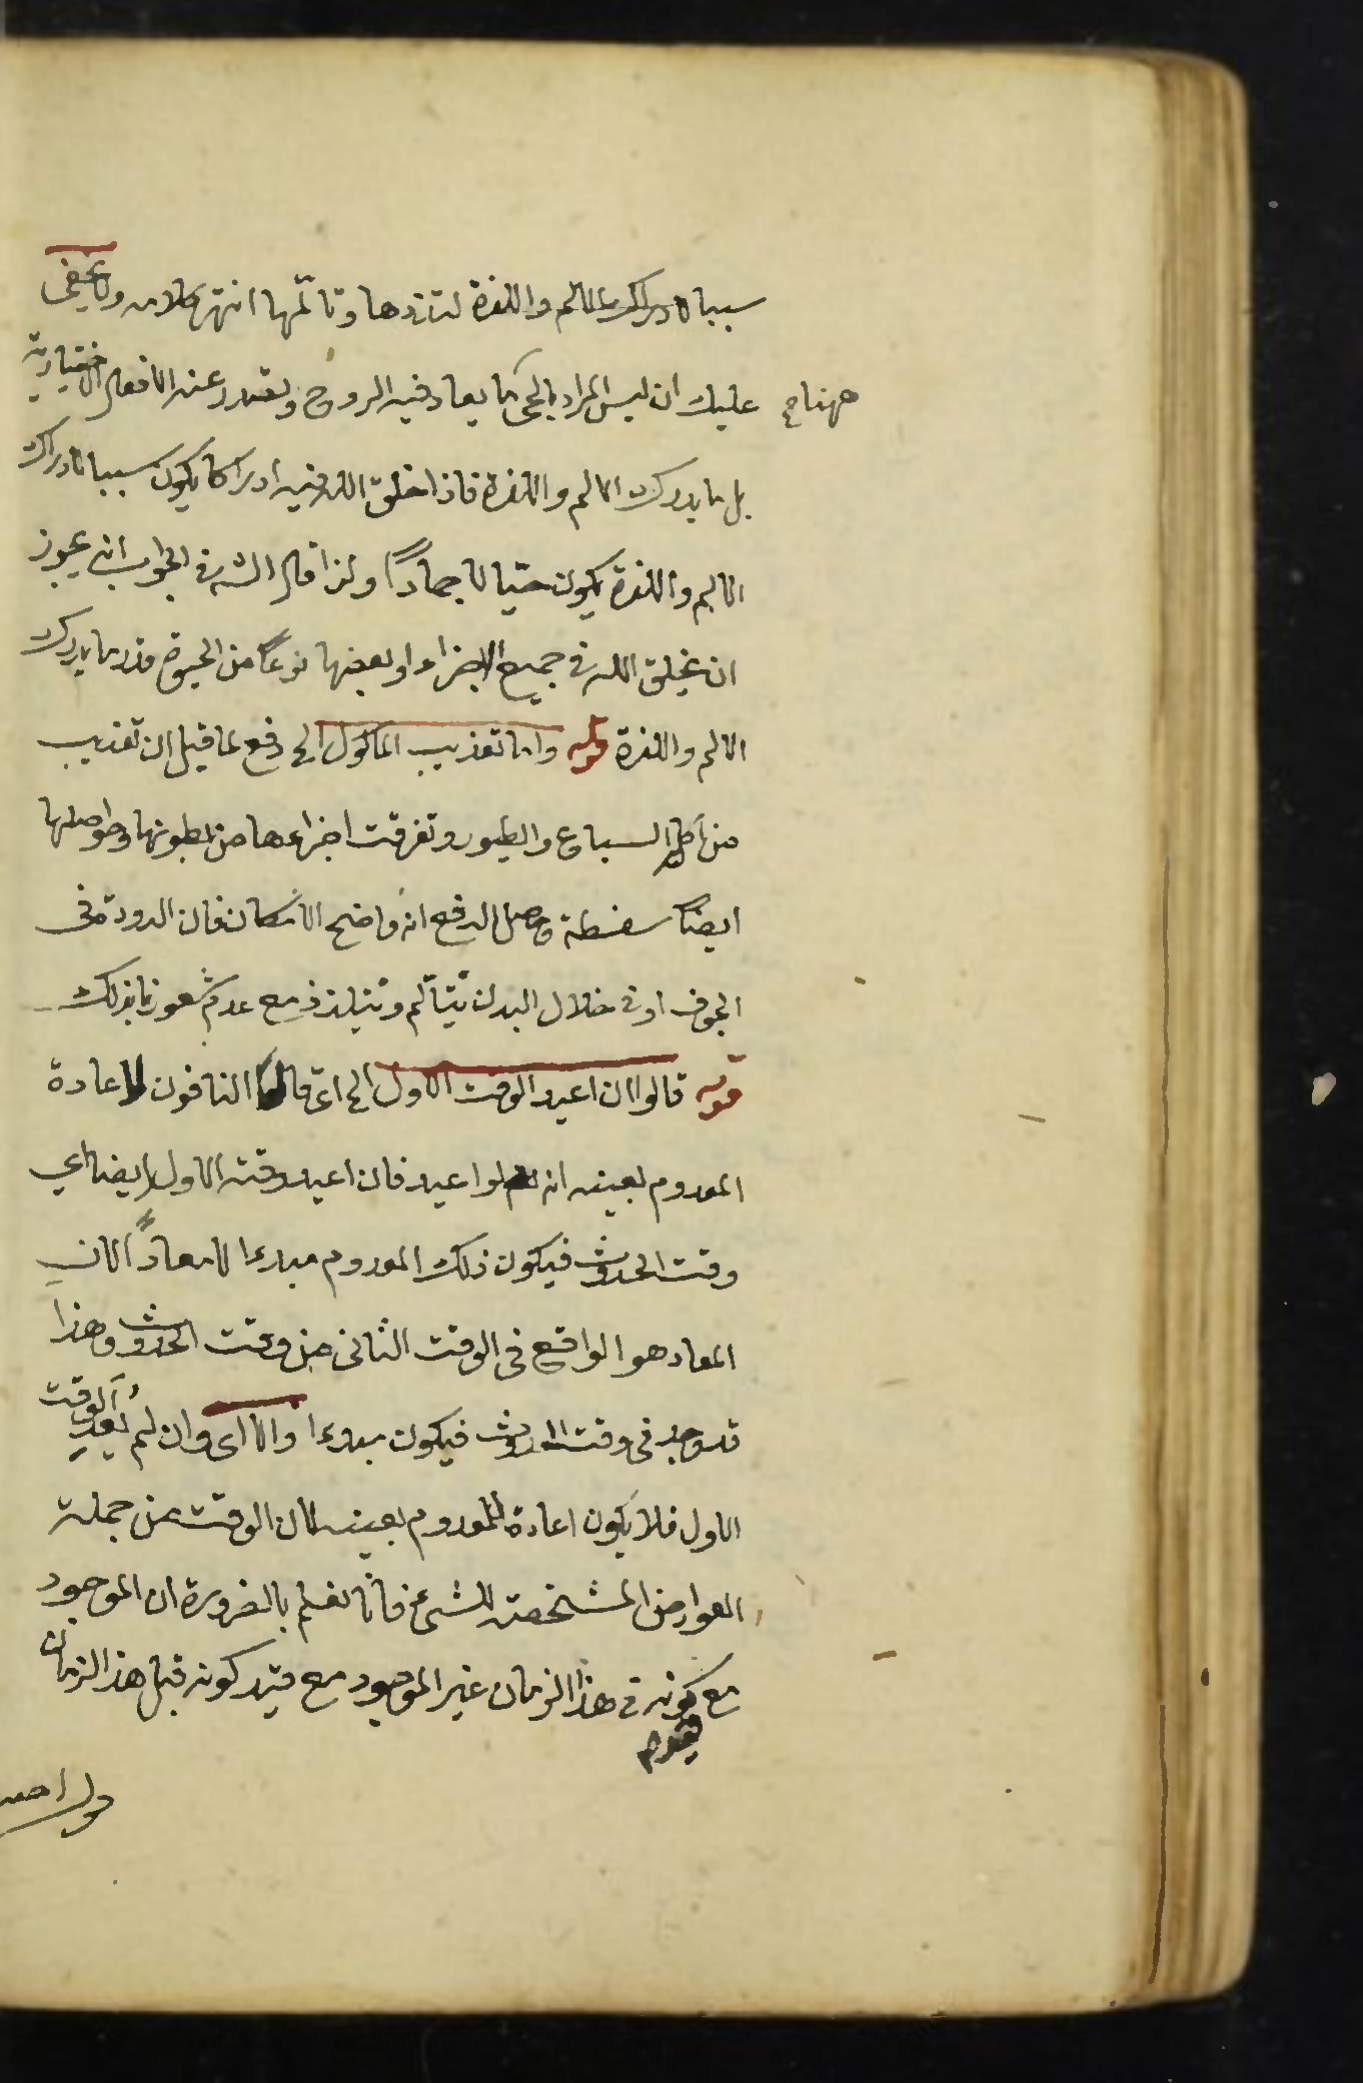 سببا لادراك الالم واللذة لتلذذها وتألمها انتهى كلامه ولا يخفى
ههنا عليك ان ليس المراد بالحى ما يعاد فيه الروح ويصدر عنه الافعال الاختيارية
بل ما يدرك الالم واللذة فاذا خلق الله فيه ادراكا يكون سببا لادراك
الالم واللذة يكون حيا لا جمادًا ولذا قال الش فى الجواب انه يجوز
ان يخلق الله فى جميع الاجزاء او بعضها نوعًا من الحيوة قدر ما يدرك
الالم واللذة قوله واما تعذيب المأكول الخ دفع لما قيل ان تعذيب
من اكله السباع والطيور وتفرقت اجزاءها من بطونها وحواصلها
ايضًا سفسطة وحاصل الدفع انه واضح الامكان فان الدودة فى
الجوف او فى خلال البدن تتألم وتتلذذ مع عدم شعورنا بذلك
قوله قالوا ان اعيد الوقت الاول الخ اى قال النافون لاعادة
المعدوم بعينه انه لو اعيد فان اعيد وقته الاول ايضا اي
وقت الحدوث فيكون ذلك المعدوم مبدءا لا معادًا لان
المعاد هو الواقع فى الوقت الثانى من وقت الحدوث وهذا
قد وجد فى وقت الحدوث فيكون مبدءا والا اى وان لم يُعد الوقت
الاول فلا يكون اعادة للمعدوم بعينه لان الوقت من جملة
العوارض المشخصة للشىء فانا نعلم بالضرورة ان الموجود
مع كونه فى هذا الزمان غير الموجود مع قيد كونه قبل هذا الزمان